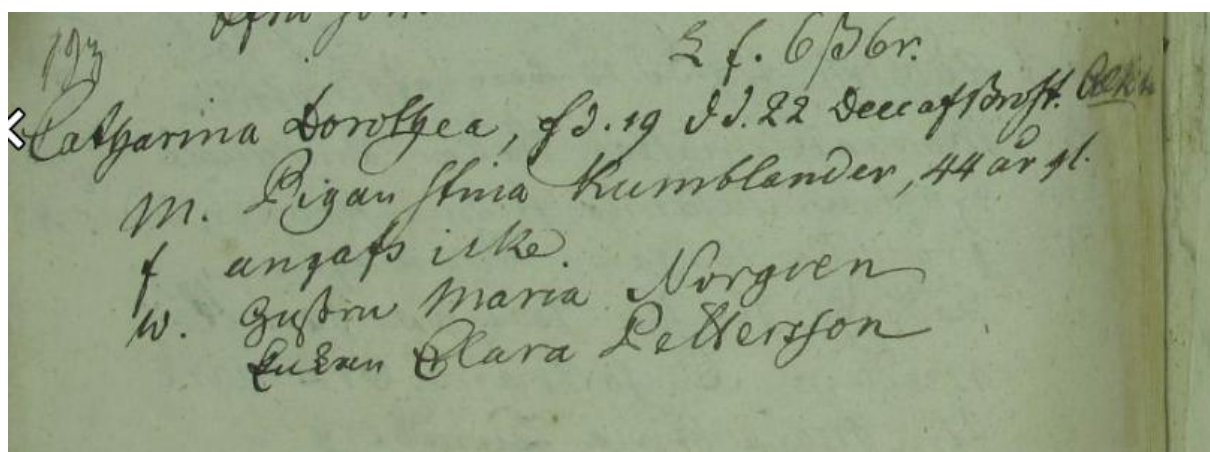 123
2 f. 6 ß 6 r.
Catharina Dorothea, fd. 19 d d. 22 Dec af
M. Pigan Stina Kumblander, 44 år gl.
f angafs icke.
w. Hustru Maria Norgren
Enkan Clara Pettersson